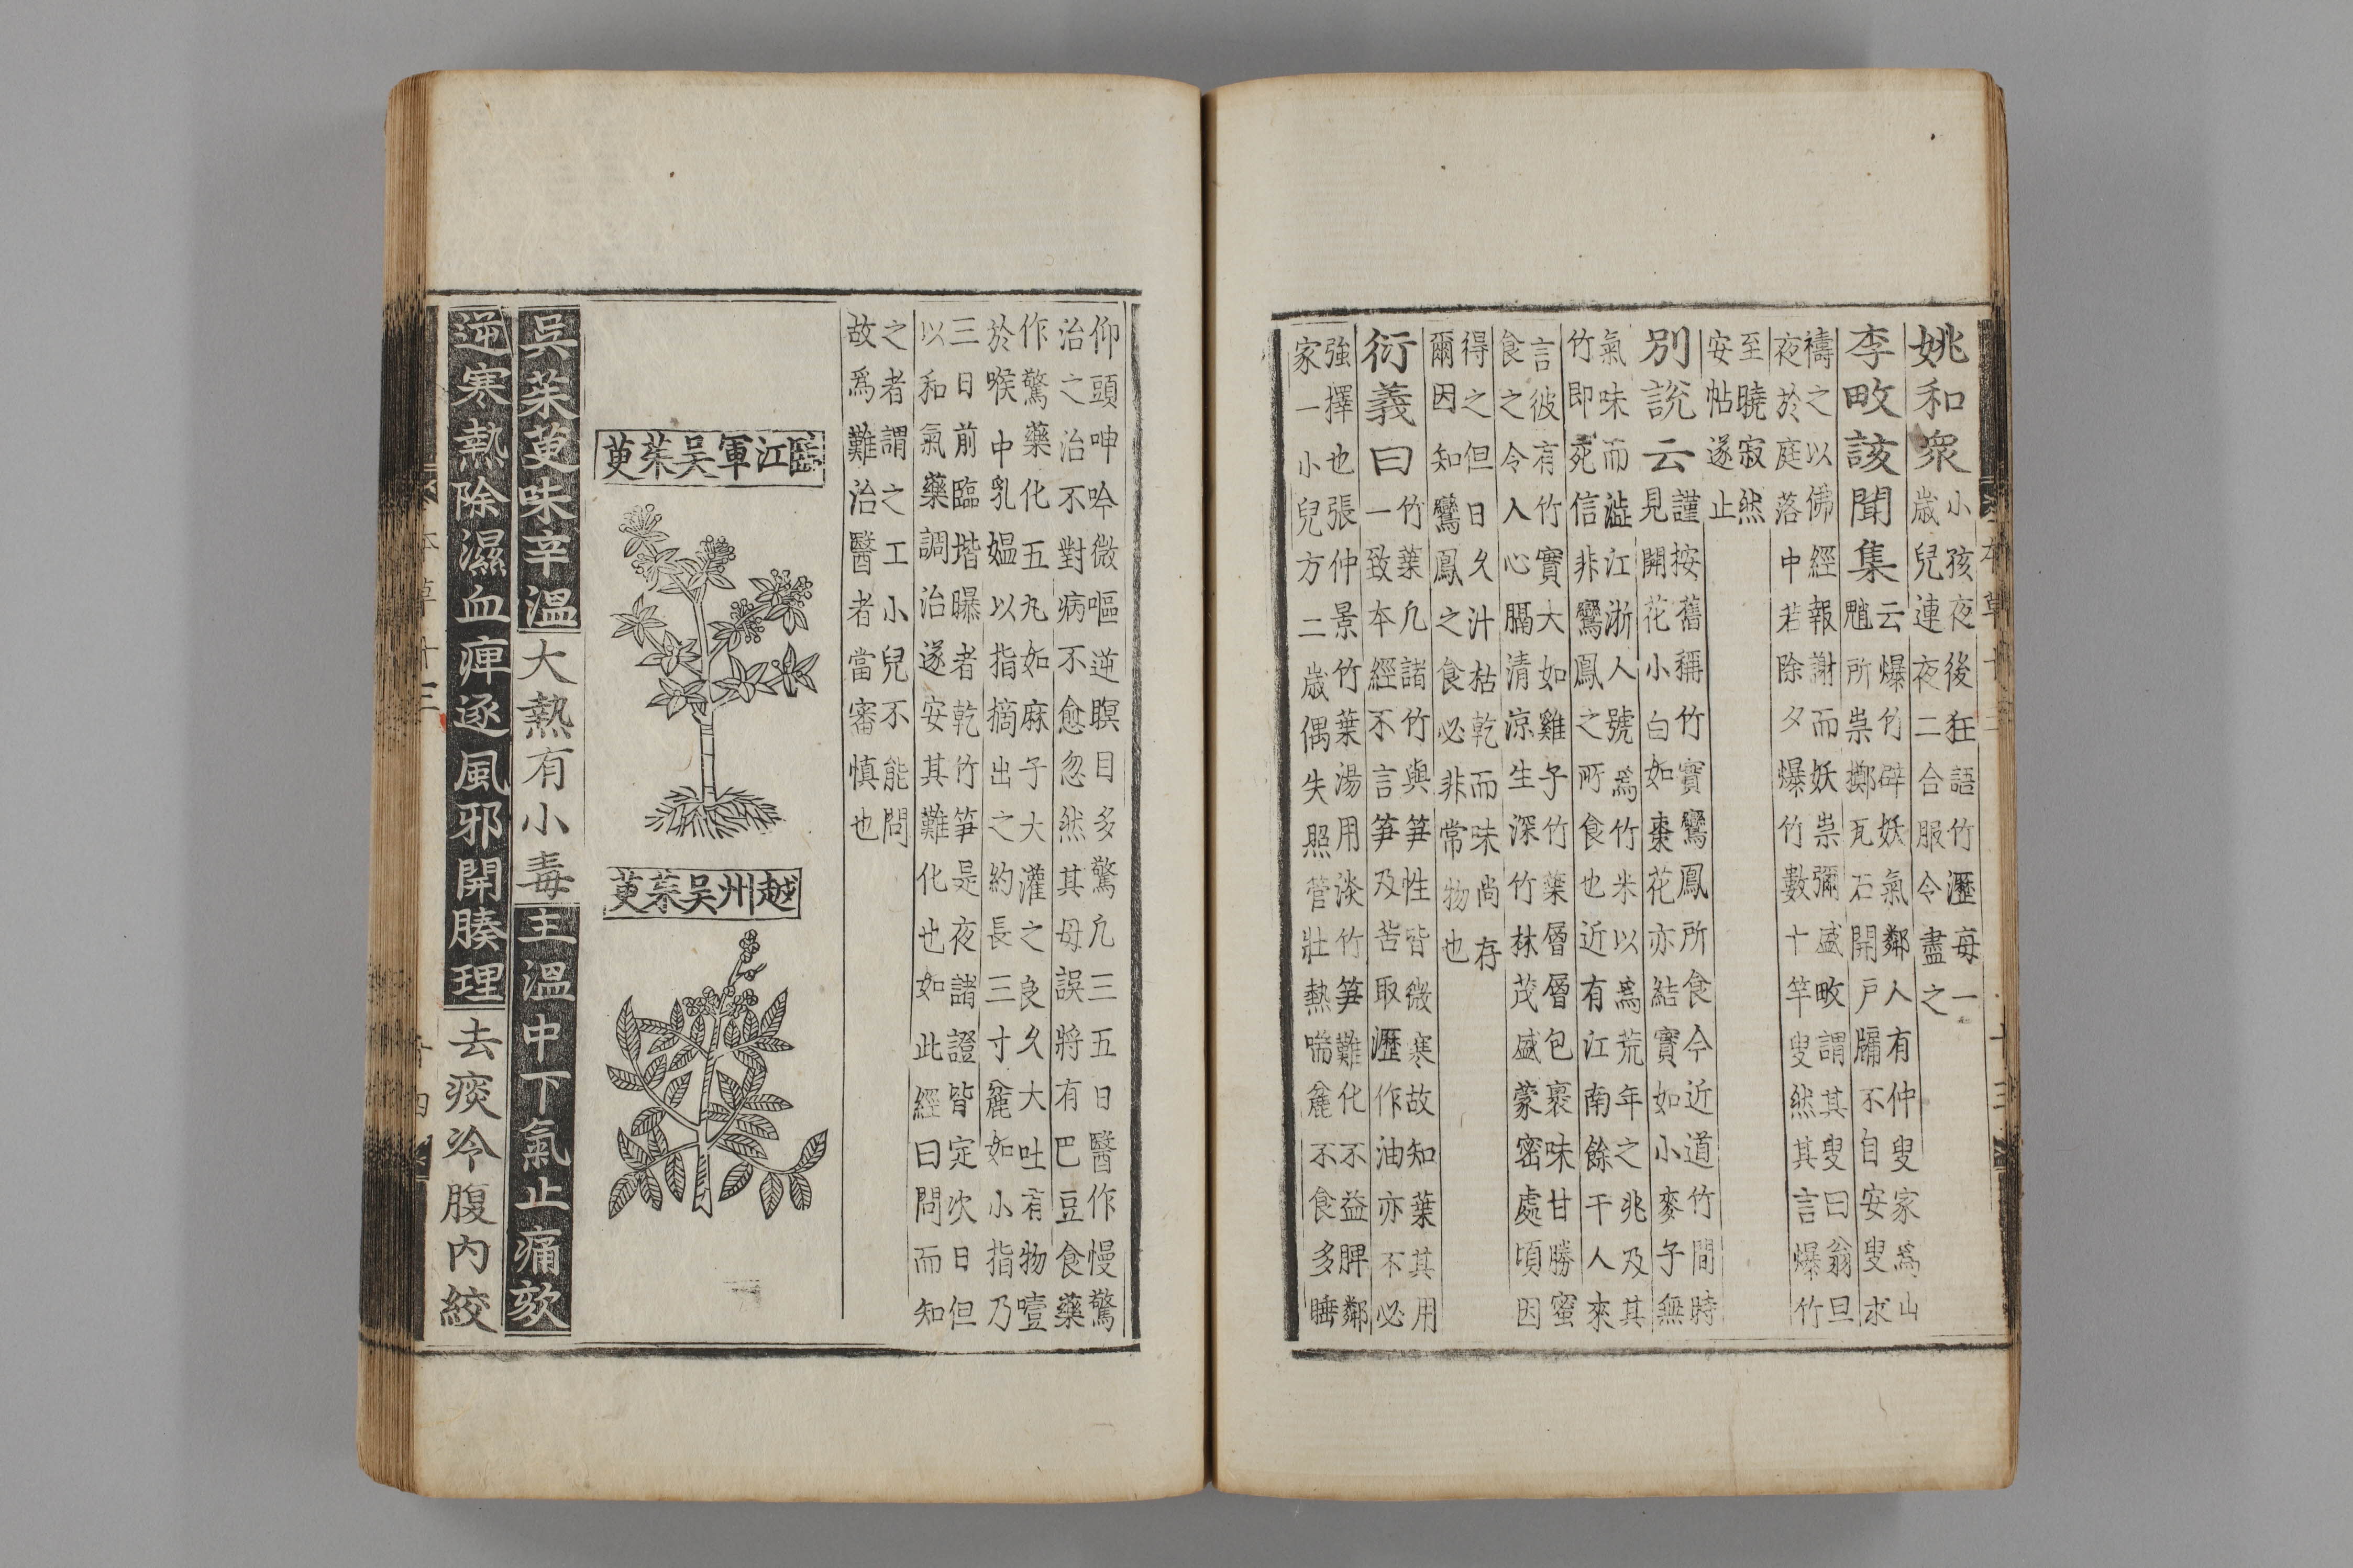 姚和衆小孩夜後狂語竹瀝每一
歳兒連夜二合服令盡之
李畋該聞集云爆竹辟妖氣鄰人有仲叟家爲山
魈所祟擲瓦石開戸牖不自安叟求
禱之以佛經報謝而妖祟彌盛畋謂其叟曰翁旦
夜於庭落中若除夕爆竹數十竿叟然其言爆竹
至曉寂然
安帖遂止
別說云謹按舊稱竹實鸞鳳所食今近道竹間時
見開花小白如棗花亦結實如小麥子無
氣味而澁江淅人號爲竹米以爲荒年之兆及其
竹即死信非鸞鳳之所食也近有江南餘干人來
言彼有竹實大如雞子竹葉層層包裹味甘勝蜜
食之令人心膈清涼生深竹林茂盛蒙密處頃因
得之但日久汁枯乾而味尚存
爾因知鸞鳳之食必非常物也
衍義曰竹葉凢諸竹與笋性皆微寒故知葉其用
一致本經不言笋及苦取瀝作油亦不必
強擇也張仲景竹葉湯用淡竹笋難化不益脾鄰
家一小兒方二歳偶失照管壯熱喘麄不食多睡
仰頭呻吟微嘔逆瞑目多驚凢三五日醫作慢驚
治之治不對病不愈忽然其母誤將有巴豆食藥
作驚藥化五丸如麻子大灌之良久大吐有物噎
於喉中乳媼以指摘出之約長三寸麄如小指乃
三日前臨堦曝者乾竹笋是夜諸證皆定次日但
以和氣藥調治遂安其難化也如此經曰問而知
之者謂之工小兒不能問
故爲難治醫者當審慎也
臨江軍吴茱萸
越州吴茱萸
吳茱萸味辛溫大熱有小毒主溫中下氣止痛欬
逆寒熱除濕血痺逐風邪開腠理去痰冷腹内絞